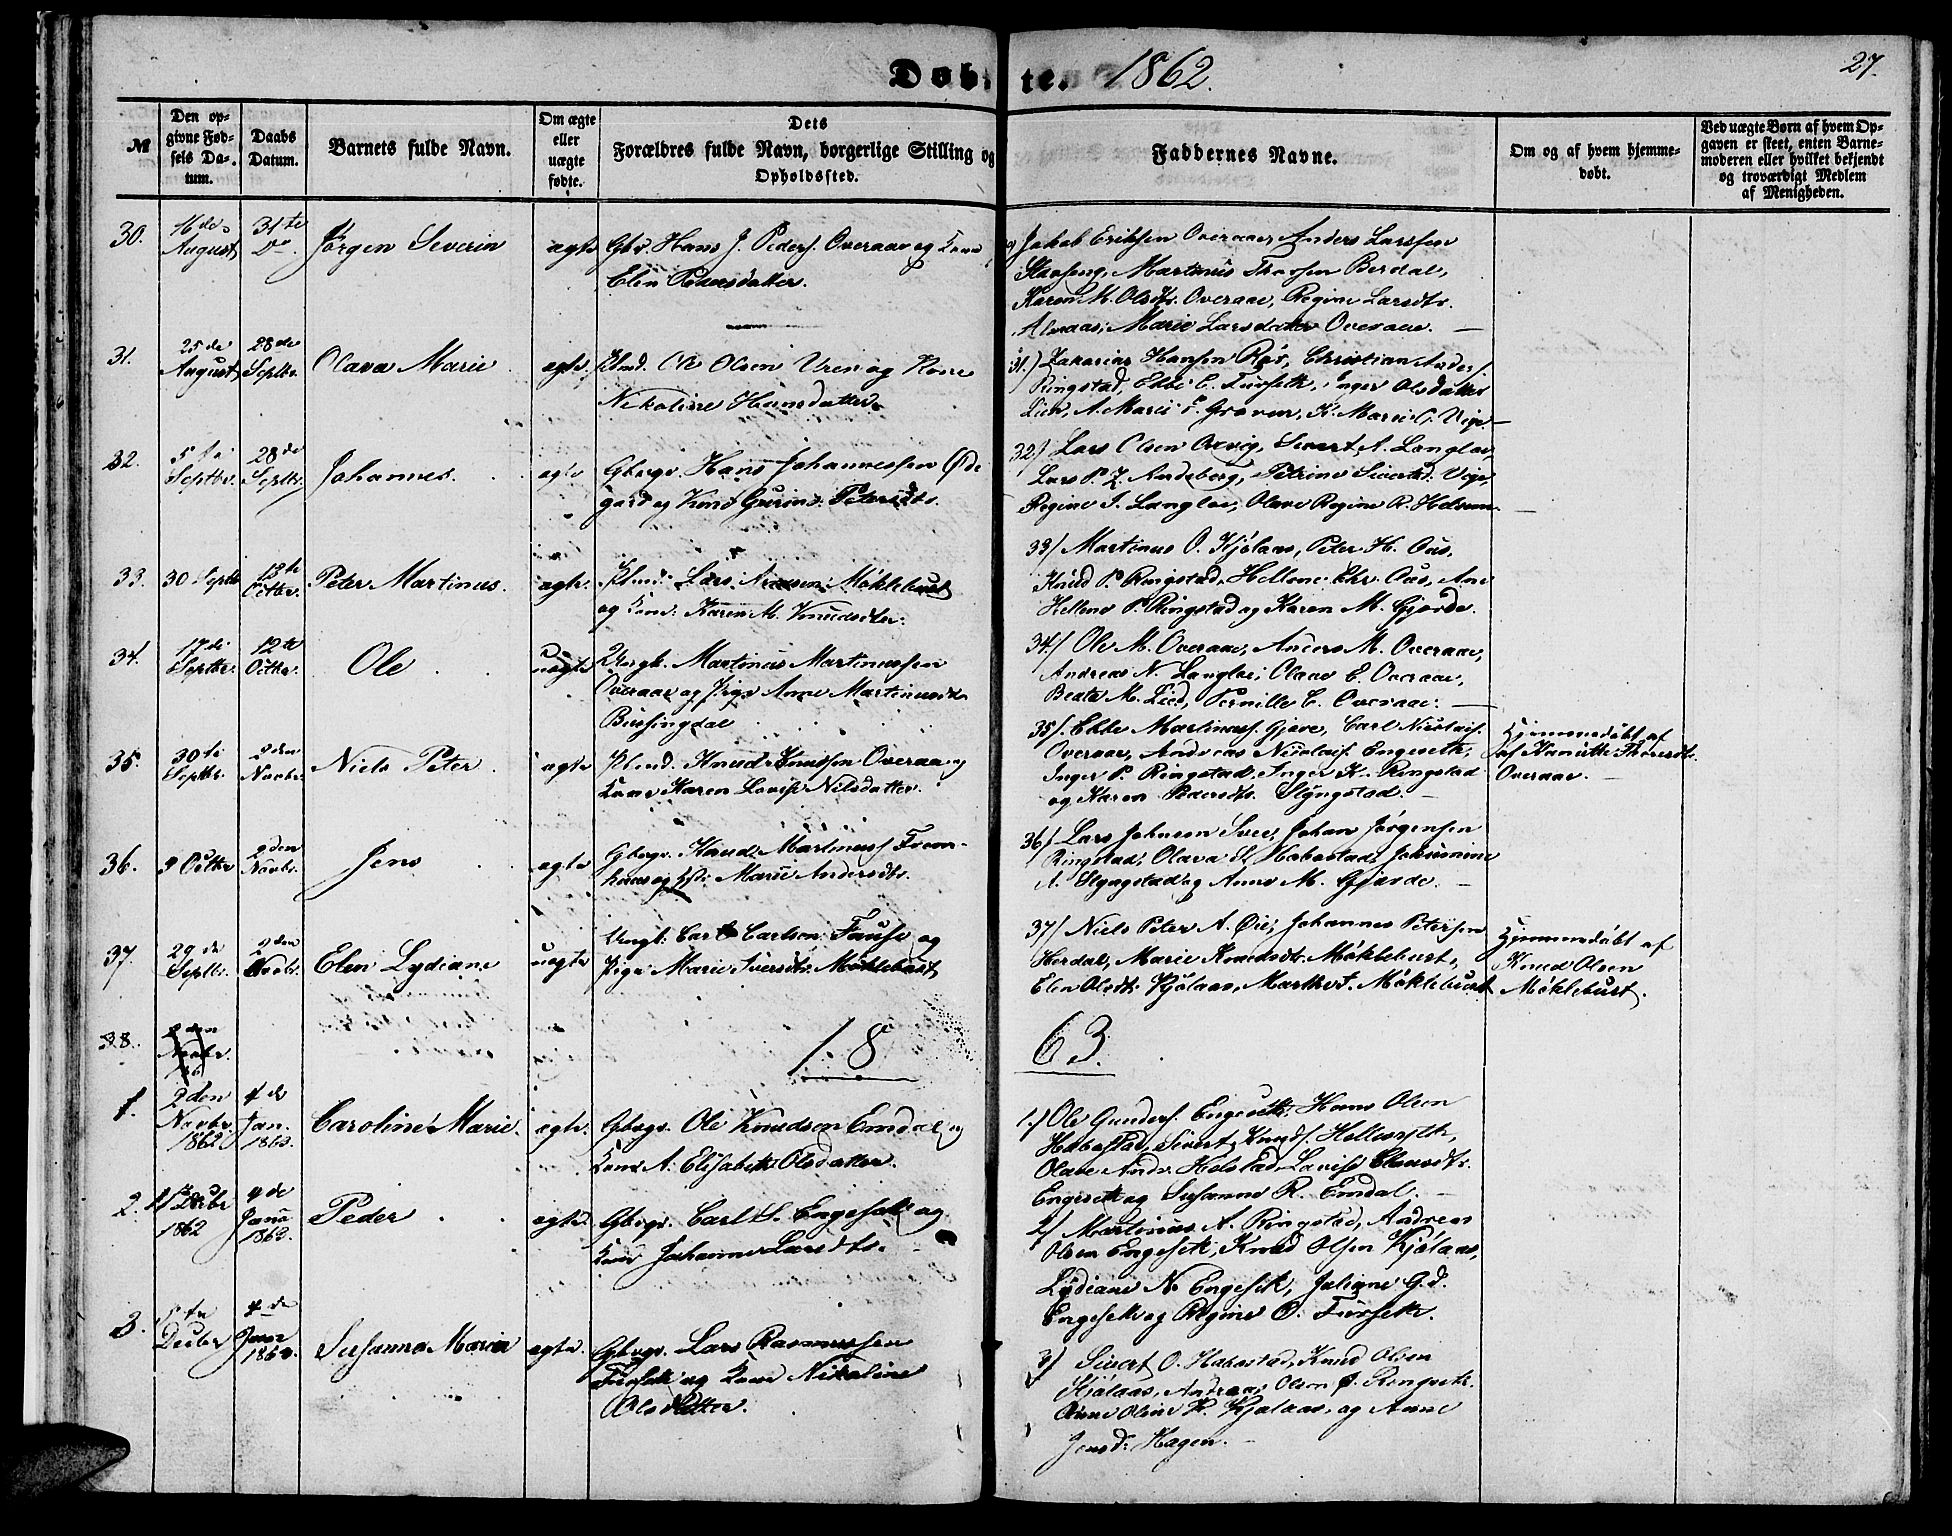 Døbte. 1862.
27.
№
Den op-
givne Fød-
sels Da-
tum.
Daabs
Datum.
Barnets fulde Navn.
Om ægte
eller
uægte
fødte.
Dets
Forældres fulde Navn, borgerlige Stilling og
Opholdssted.
Faddernes Navne.
Om og af hvem hjemme-
døbt.
Ved uægte Børn af hvem Op-
gaven er skeet, enten Barne-
moderen eller hvilket bekjendt
og troværdigt Medlem
af Menigheden.
30.
16de
August
31te
Do.
Jörgen Severin
ægte
Hans J. Peders. Overaae og Kone
Elen Pedersdatter.
Jakob Eriksen Overaae, Anders Larssen
Martinus Thorsen Berdal,
Karen M. Olsdtr. Overaae, Regine Larsdtr.
Marie Larsdatter Overaae.
31.
25de
August
28de
Septbr.
Olava Marie
ægte
Ole Olsen Uren og Kone
Nikoline Hansdatter.
31.) Zakarias Hansen Christian Anders.
Ringstad, Ebbe E. Furseth, Inger Olsdatter
Lien, A. Marie K. Marie
32.
5te
Septbr.
28de
Septbr.
Johannes.
ægte
Gbrgr. Hans Johannessen Øde
gard og Kone Petersdtr.
32/ Lars Olsen Sivert A. Langlo,
Lars P. Z. Andeberg, Petrine
Regine J. Langlo, Olave Regine R.
33.
30 Septbr
12te
Octbr.
Peter Martinus.
ægte.
Lars Møklebust
og Kone: Karen M. Knudsdtr.
33/ Martinus O. Kjølaas, Peter H. Aas,
Knud P. Ringstad, Hellene Chr. Aas, Ane
Hellene P. Ringstad og Karen M. Gjørde.
34.
17de
Septbr.
12te
Octbr.
Ole
uægte
Ungk. Martinus Martinussen
Overaae og Pige Anne Martinusdtr
Bussingdal
34/ Ole M. Overaae, Anders M. Overaae,
Andreas N. Langlo, Olave E. Overaae,
Beate M. Lied, Pernille E. Overaae.
35.
30te
Septbr.
2den
Novbr.
Niels Peter
ægte
Knud Knudssen Overaae og
Kone Karen Lovise Nilsdatter.
35/ Ebbe Martinuss. Gjøre, Carl Nicolais.
Overaae, Andreas Nicolais. Engeseth,
Inger P. Ringstad, Inger K. Ringstad
og Karen Pedersdtr. Slyngstad.
Hjemmedøbt af
Overaae.
36.
9 Octbr
2den
Novbr.
Jens
ægte
Gbrgr. Knud Martinuss. Frem-
Marie Andersdtr.
36/ Lars Johnsen Svee, Johan Jörgensen
Ringstad, Olava S. Habostad,
A. Slyngstad og Anne M. Gjørde.
37.
29de
Septbr.
2den
Novbr.
Elen Lydiane
uægte
Ungk. Carl Carlsen Fause og
Pige Marie Iversdtr. Møklebust
37/ Niels Peter A. Øie, Johannes Petersen
Herdal, Marie Knudsdtr. Møklebust,
Elen Olsdtr. Kjølaas, Marthe Møklebust
Hjemmedøbt af
Knud Olsen
Møklebust.
38.
2den
Novbr.
18 63.
1.
2den
Novbr.
1862
4de
Jan.
1863.
Caroline Marie.
ægte.
Gbrgr. Ole Knudsen Emdal og
Kone A. Elisabeth Olsdatter.
1.) Ole Gunders. Engeseth, Hans Olsen
Habostad, Sivert Knuds. Hellesylt,
Olave Andr. Lovise
Engeseth og Susanne R. Emdal.
2.
Decbr
1862
4de
Janu
1863.
Peder
ægte.
Gbrgr. Carl S. Engeseth og
Kone Johanne Larsdtr.
2/ Martinus A. Ringstad, Andreas
Olsen Engeseth, Knud Olsen Kjølaas,
Lydiane N. Engeseth, Juliane G.d.
Engeseth og Regine O. Furseth.
3.
5te
Decbr
4de
Janr
1863.
Susanne Maria
ægte.
Gbrgr. Lars Rasmussen
Furseth og Kone Nikoline
Olsdatter.
3/ Sivert O. Habostad, Knud Olsen
Kjølaas, Andreas Olsen
Anne Oline K. Kjølaas, og Anne
Jensd. Hagen.